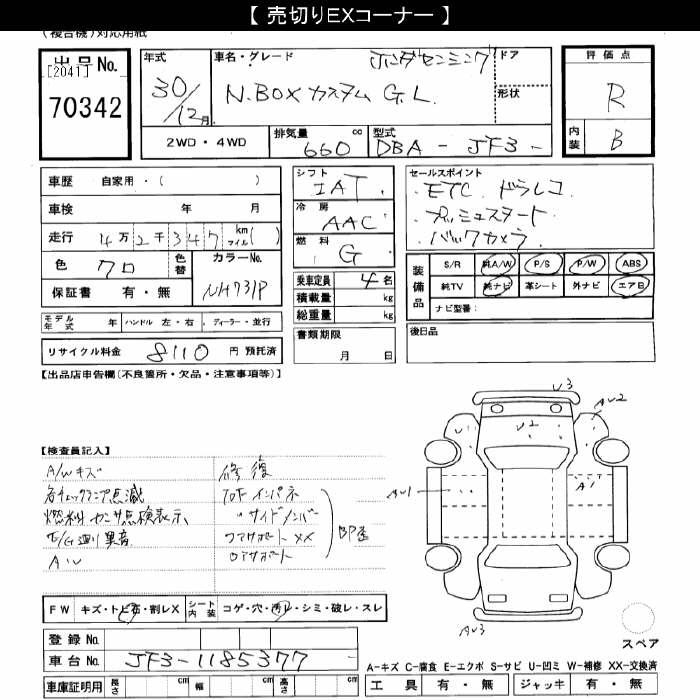 【 売切りEXコーナー 】
(複合機)対応用紙
出品No.
[2041]
70342
年式
30/12月
車名・グレード
ホンダセンシング
N.BOXカスタム G.L.
ドア
形状
評価点
R
内装
B
2WD・4WD
排気量 660 cc
型式 DBA - JF3 -
車歴 自家用・( )
車検 年 月
走行 4万2千347 km マイル( )
色 クロ
色替
カラーNo. NH731P
保証書 有・無
モデル年式 年 ハンドル 左・右 ディーラー・並行
リサイクル料金 8110 円 預託済
シフト IAT
冷房 AAC
燃料 G
乗車定員 4 名
積載量 kg
総重量 kg
書類期限
月 日
セールスポイント
・ETC. ドラレコ
・プッシュスタート
・バックカメラ
装備品
S/R 純A/W P/S P/W ABS
純TV 純ナビ 革シート 外ナビ エアB
ナビ型番:
後日品
【出品店申告欄(不良箇所・欠品・注意事項等)】
【検査員記入】
A/Wキズ
各チェックランプ点滅
燃料センサ点検表示
E/G廻り異音
A・U
修復
インパネ
サイドメンバー
コアサポート XX
ロアサポート
FW キズ・トビ石・割レX
シート内装 コゲ・穴・汚レ・シミ・破レ・スレ
登録No.
車台No. JF3-1185377
車庫証明用 長さ cm 幅 cm 高さ cm
U3
AU2
U1
U2
AU1
A1
AU3
スペア
A-キズ C-腐食 E-エクボ S-サビ U-凹ミ W-補修 XX-交換済
工具 有・無 ジャッキ 有・無